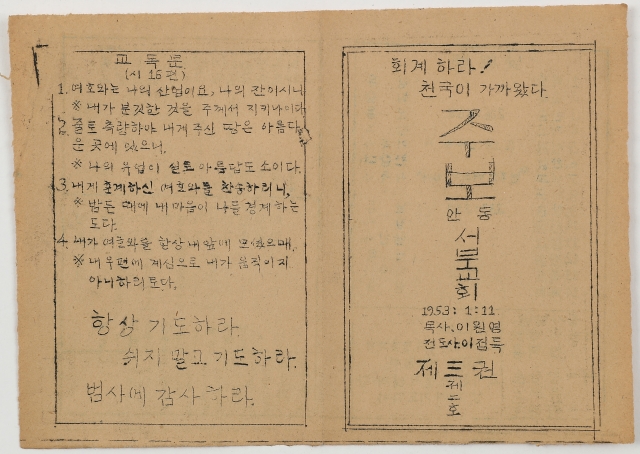 교독문
(시 16편)
1. 여호와는 나의 산업이요, 나의 잔이시니
※ 내가 분깃한 것을 주께서 지키나이다
2. 줄로 측량하야 내게 주신 땅은 아름다
운 곳에 있으니,
※ 나의 유업이 실로 아름답도소이다.
3. 내게 훈계하신 여호와를 찬송하리니,
※ 밤든 때에 내 마음이 나를 경계하는
도다.
4. 내가 여호와를 항상 내 앞에 모셨으매,
※ 내 우편에 계심으로 내가 움직이지
아니하리로다.
항상 기도하라.
쉬지 말고 기도하라.
범사에 감사하라.
회계하라!
천국이 가까왔다.
주보
안동
서부교회
1953: 1:11
목사、이원영
전도사이점득
제三권
제二호